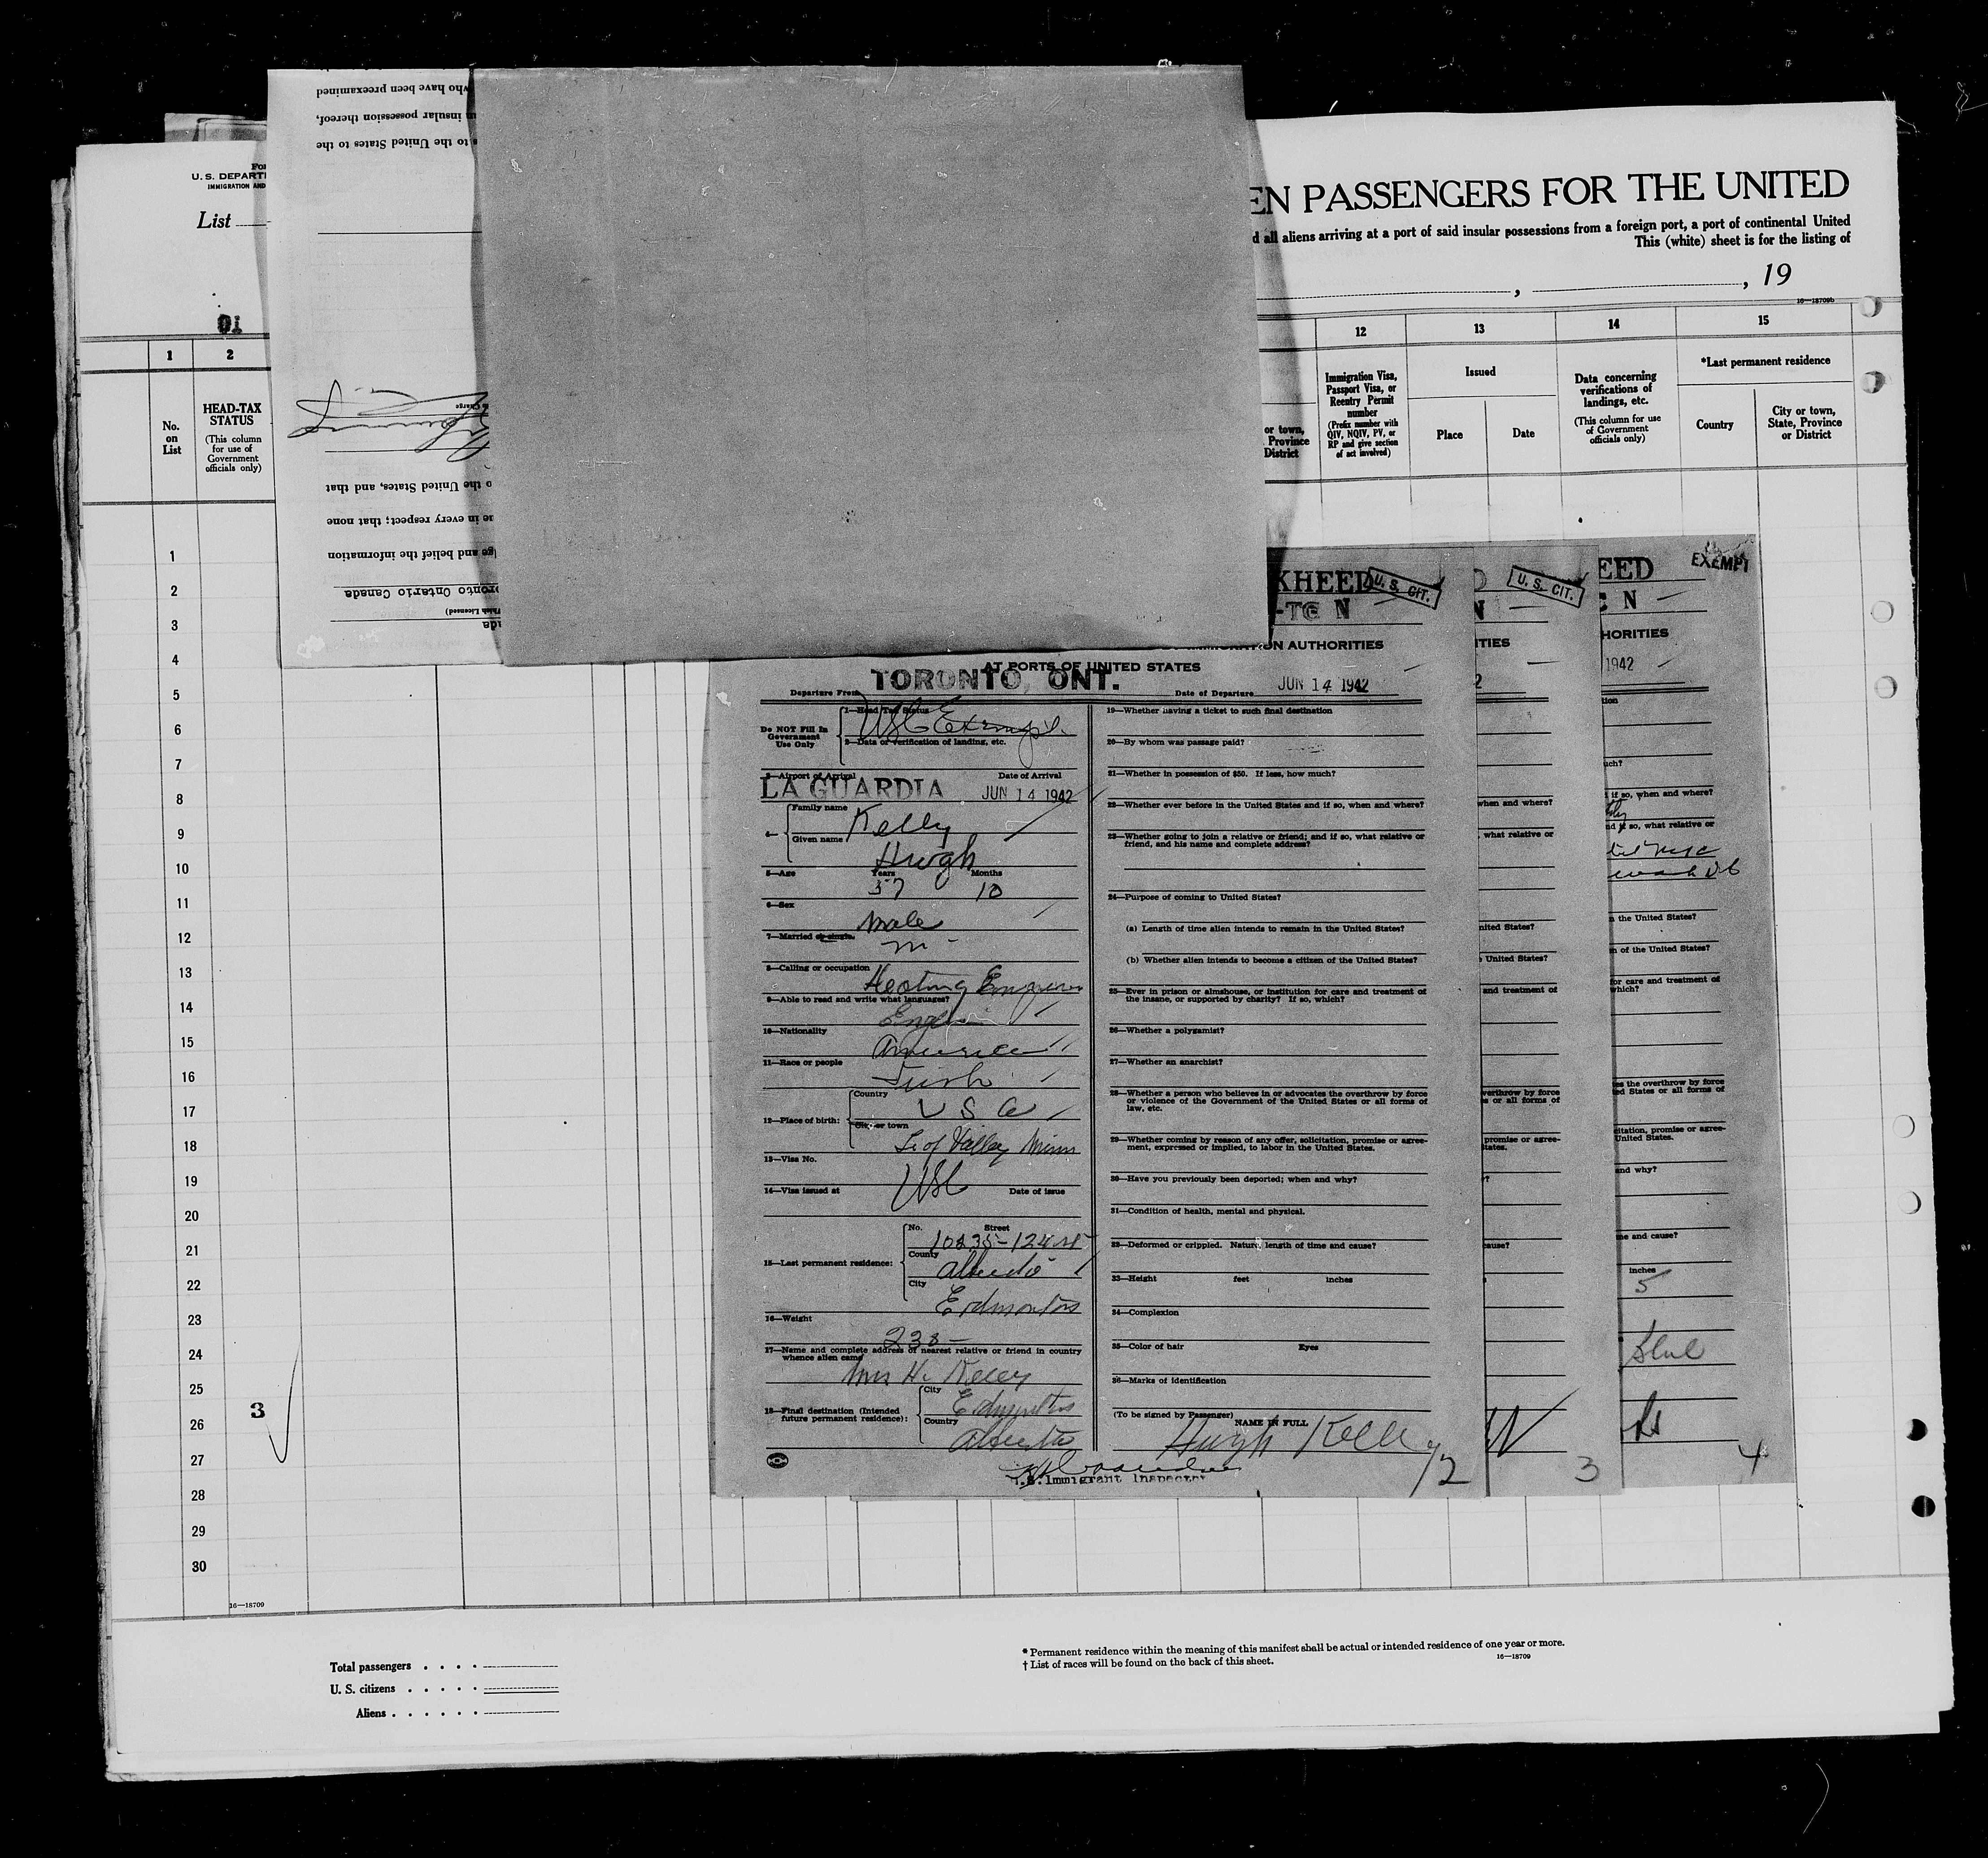 who have been preexamined
insular possession thereof,
to the United States to the
to the United States, and that
in every respect; that none
and belief the information
Toronto Ontario Canada
U. S. DEPART
IMMIGRATION AND
List
EN PASSENGERS FOR THE UNITED
all aliens arriving at a port of said insular possessions from a foreign port, a port of continental United
This (white) sheet is for the listing of
, , 19
16—18709b
1 2 12 13 14 15
No. on List
HEAD-TAX STATUS
(This column for use of Government officials only)
or town, Province District
Immigration Visa, Passport Visa, or Reentry Permit number
(Prefix number with QIV, NQIV, PV, or RP and give section of act involved)
Issued
Place Date
Data concerning verifications of landings, etc.
(This column for use of Government officials only)
*Last permanent residence
Country
City or town, State, Province or District
1
2
3
4
5
6
7
8
9
10
11
12
13
14
15
16
17
18
19
20
21
22
23
24
25
26
27
28
29
30
3
16—18709
KHEED U. S. CIT.
N
ON AUTHORITIES
AT PORTS OF UNITED STATES
Departure From TORONTO, ONT. Date of Departure JUN 14 1942
Do NOT Fill In Government Use Only
1—Head Tax Status USC Exempt
2—Data of verification of landing, etc.
3—Airport of Arrival Date of Arrival
LA GUARDIA JUN 14 1942
4— Family name Kelly
Given name Hugh
5—Age Years 37 Months 10
6—Sex Male
7—Married or single. M
8—Calling or occupation Heating Engineer
9—Able to read and write what languages? English
10—Nationality American
11—Race or people Irish
12—Place of birth: Country U S A
City or town Valley Minn
13—Visa No. USC
14—Visa issued at Date of issue
15—Last permanent residence: No. Street 10235-124 St
County Alberta
City Edmonton
16—Weight 238
17—Name and complete address of nearest relative or friend in country whence alien came
Mrs H. Kelly
18—Final destination (Intended future permanent residence): City Edmonton
Country Alberta
19—Whether having a ticket to such final destination
20—By whom was passage paid?
21—Whether in possession of $50. If less, how much?
22—Whether ever before in the United States and if so, when and where?
23—Whether going to join a relative or friend; and if so, what relative or friend, and his name and complete address?
24—Purpose of coming to United States?
(a) Length of time alien intends to remain in the United States?
(b) Whether alien intends to become a citizen of the United States?
25—Ever in prison or almshouse, or institution for care and treatment of the insane, or supported by charity? If so, which?
26—Whether a polygamist?
27—Whether an anarchist?
28—Whether a person who believes in or advocates the overthrow by force or violence of the Government of the United States or all forms of law, etc.
29—Whether coming by reason of any offer, solicitation, promise or agreement, expressed or implied, to labor in the United States.
30—Have you previously been deported; when and why?
31—Condition of health, mental and physical.
32—Deformed or crippled. Nature, length of time and cause?
33—Height feet inches
34—Complexion
35—Color of hair Eyes
36—Marks of identification
(To be signed by Passenger) NAME IN FULL
Hugh Kelly
U.S. Immigrant Inspector
2
U. S. CIT.
N
TIES
2
when and where?
what relative or
nited States?
United States?
and treatment of
verthrow by force
s or all forms of
promise or agree-
tates.
cause?
3
EED EXEMPT
N
HORITIES
1942
tion
uch?
if so, when and where?
nd if so, what relative or
the United States?
n of the United States?
for care and treatment of
which?
es the overthrow by force
ed States or all forms of
citation, promise or agree-
United States.
and why?
me and cause?
inches
5
blue
4
Total passengers . . . .
U. S. citizens . . . . .
Aliens . . . . . .
* Permanent residence within the meaning of this manifest shall be actual or intended residence of one year or more.
† List of races will be found on the back of this sheet.
16—18709